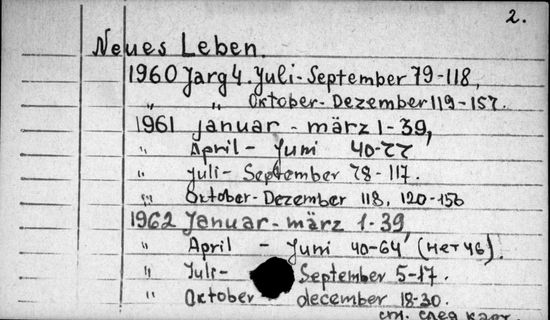 2.
Neues Leben.
1960 Jarg 4. Juli - September 79-118,
„ „ Oktober - Dezember 119-157.
1961 Januar - märz 1-39,
„ April - Juni 40-77
„ Juli - September 78-117.
„ Oktober - Dezember 118, 120-156
1962 Januar - märz 1-39,
„ April - Juni 40-64 (нет 46).
„ Juli - September 5-17.
„ Oktober december 18-30.
см. след карт.